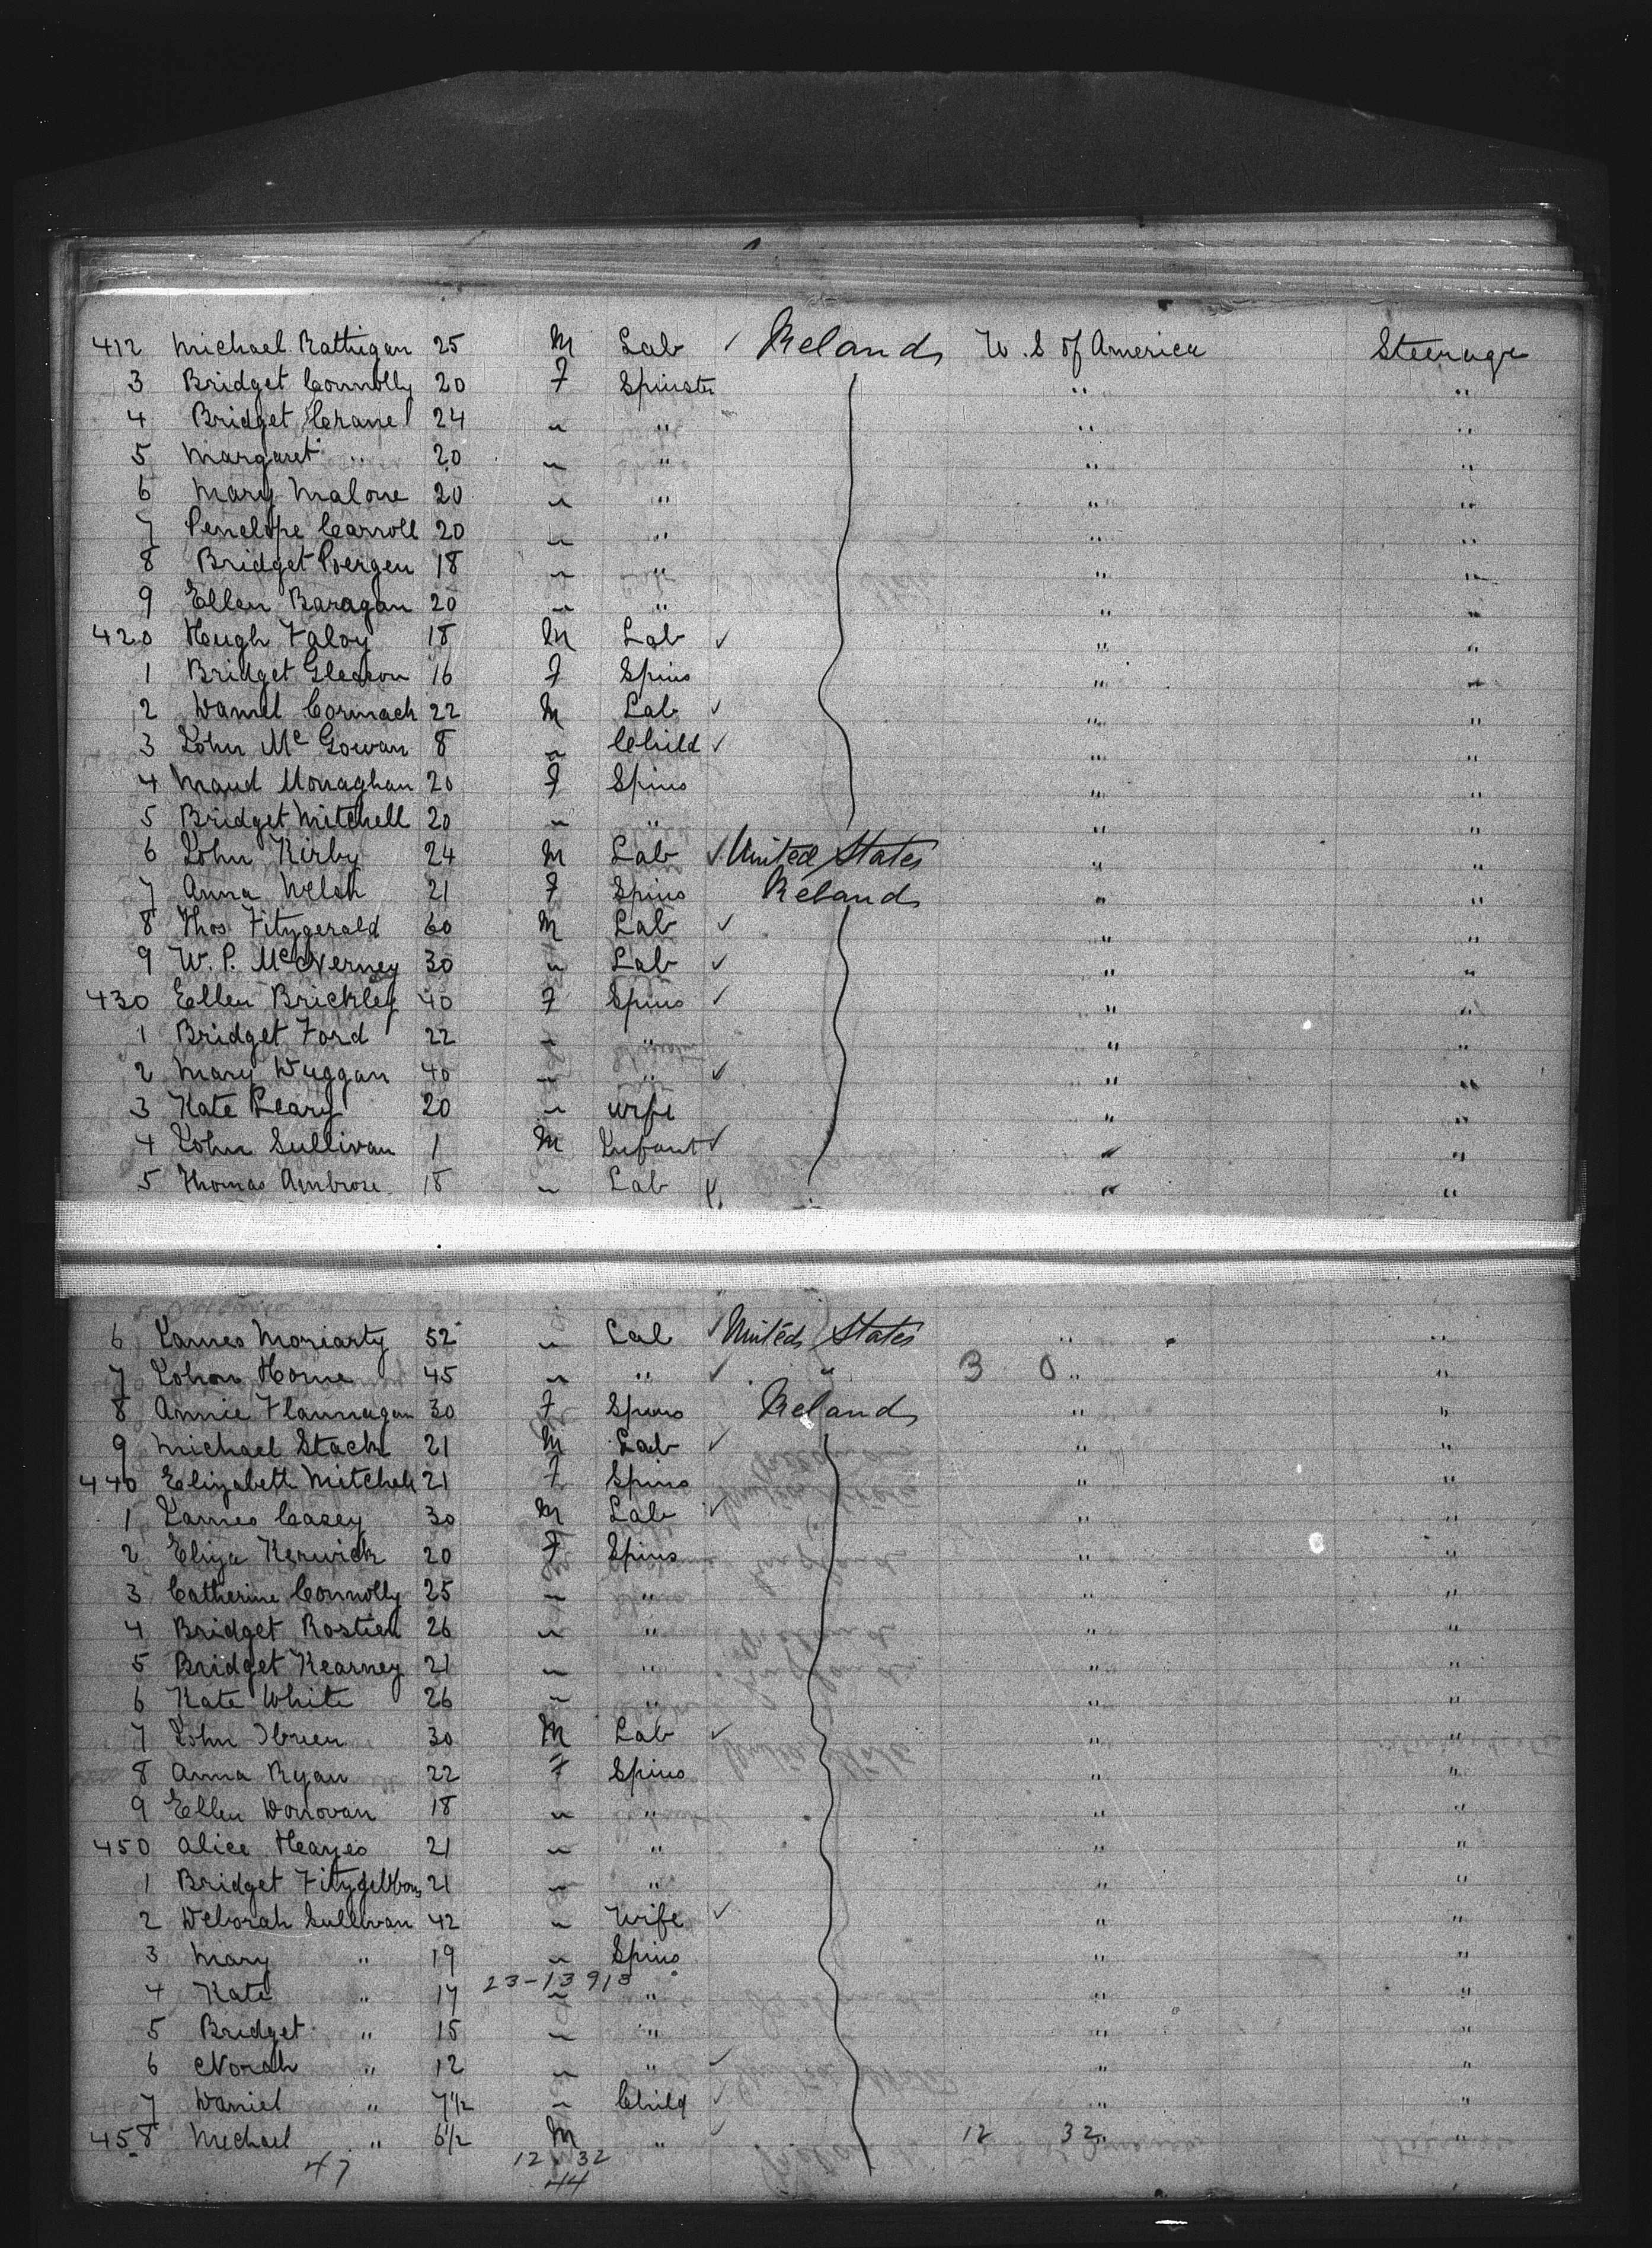 412 Michael Rattigan 25 M Lab ✓ Ireland U.S of America Steerage
3 Bridget Connolly 20 F Spinster " "
4 Bridget Crane 24 " " " "
5 Margaret " 20 " " " "
6 Mary Malone 20 " " " "
7 Penelope Carroll 20 " " " "
8 Bridget 18 " " " "
9 Ellen Baragan 20 " " " "
420 Hugh Faloy 18 M Lab ✓ " "
1 Bridget Gleason 16 F Spins " "
2 Daniel Cormack 22 M Lab ✓ " "
3 John McGowan 8 " Child ✓ " "
4 Maud Monaghan 20 F Spins " "
5 Bridget Mitchell 20 " " " "
6 John Kirby 24 M Lab ✓ United States " "
7 Anna Welsh 21 F Spins Ireland " "
8 Thos Fitzgerald 60 M Lab ✓ " "
9 W. P. McNerney 30 " Lab ✓ " "
430 Ellen Brickley 40 F Spins ✓ " "
1 Bridget Ford 22 " " " "
2 Mary Duggan 40 " " ✓ " "
3 Kate Leary 20 " Wife " "
4 John Sullivan 1 M Infant ✓ " "
5 Thomas Ambrose 18 " Lab ✓ " "
6 James Moriarty 52 " Lab ✓ United States " "
7 John Horne 45 " " ✓ " 3 0 " "
8 Annie Flannagan 30 F Spins Ireland " "
9 Michael Stack 21 M Lab ✓ " "
440 Elizabeth Mitchell 21 F Spins " "
1 James Casey 30 M Lab ✓ " "
2 Eliza Kerwick 20 F Spins " "
3 Catherine Connolly 25 " " " "
4 Bridget Rostien 26 " " " "
5 Bridget Kearney 21 " " " "
6 Kate White 26 " " " "
7 John Obrien 30 M Lab ✓ " "
8 Anna Ryan 22 F Spins " "
9 Ellen Donovan 18 " " " "
450 Alice Heayes 21 " " " "
1 Bridget Fitzgibbons 21 " " " "
2 Deborah Sullivan 42 " Wife ✓ " "
3 Mary " 19 " Spins " "
23-13 913
4 Kate " 17 " " " "
5 Bridget " 15 " " " "
6 Norah " 12 " " ✓ " "
7 Daniel " 7 1/2 " Child ✓ " "
458 Michael " 6 1/2 M " ✓ 12 32 " "
47 12 . 32
44